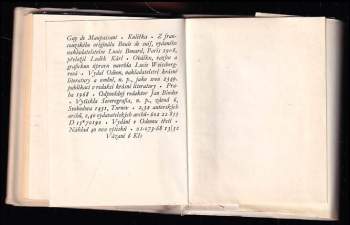 Guy de Maupassant • Kulička • Z fran-
couzského originálu Boule de suif, vydaného
nakladatelstvím Louis Conard, Paris 1908,
přeložil Luděk Kárl • Obálku, vazbu a
grafickou úpravu navrhla Lucie Weisberg-
rová • Vydal Odeon, nakladatelství krásné
literatury a umění, n. p., jako svou
publikaci v redakci krásné literatury • Pra-
ha 1968 • Odpovědný redaktor Jan Binder
• Vytiskla Severografia, n. p., závod 6,
Svobodova 1431, Turnov • 2,30 autorských
archů, 2,40 vydavatelských archů • 602 22 855
Vydání v Odeonu třetí •
Náklad 40 000 výtisků • 01-173-68 13/32
Vázané 6 Kčs